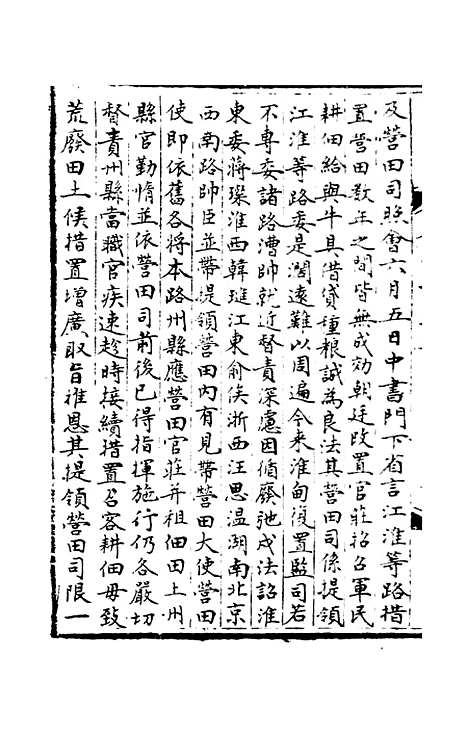 及營田司照會六月五日中書門下省言江淮等路措
置營田数年之間皆無成効朝廷改置官莊招召軍民
耕佃給與牛具借貸種粮誠為良法其營田司係提領
江淮等路委是濶遠難以周遍今来淮甸復置監司若
不專委諸路漕帥就近督責深慮因循廢弛戍法詔淮
東委蔣璨淮西韓璡江東俞俟浙西汪思温湖南北京
西南路帥臣並帶提領營田内有見帶營田大使營田
使即依舊各將本路州縣應營田官莊并租佃田上州
縣官勤惰並依營田司前後已得指揮施行仍各嚴切
督責州縣當職官疾速趂時接續措置召客耕佃毋致
荒廢田土候措置增廣取旨推恩其提領營田司限一